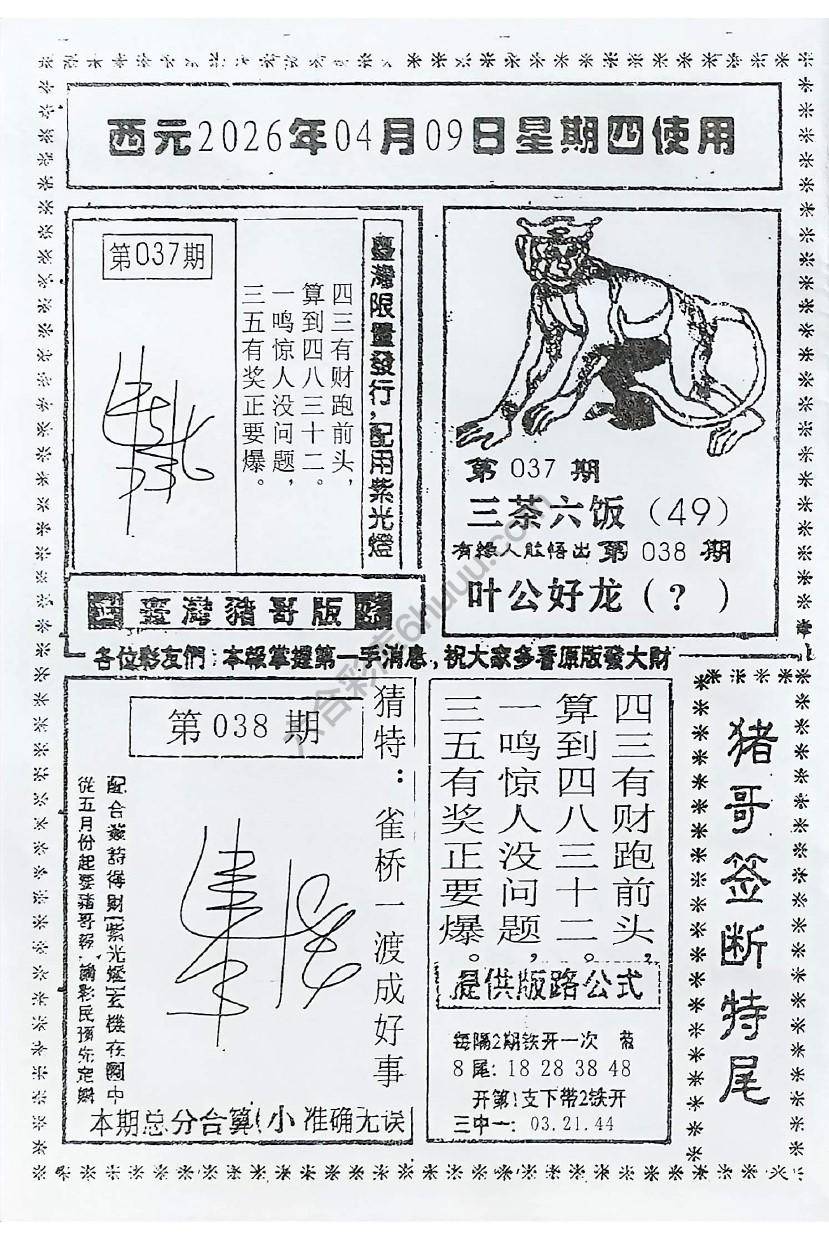 西元2026年04月09日星期四使用
第037期
四三有财跑前头，
算到四八三十二。
一鸣惊人没问题，
三五有奖正要爆。
臺灣限量發行，配用紫光燈
第 037 期
三茶六饭（49）
有緣人能悟出 第 038 期
叶公好龙（？）
臺灣豬哥版
各位彩友們：本報掌握第一手消息，祝大家多看原版發大財
第 038 期
猜特：雀桥一渡成好事
配合簽詩得財紫光燈玄機在圖中
從五月份起要豬哥報，請彩民預先定購
本期总分合算(小 准确无误
四三有财跑前头，
算到四八三十二。
一鸣惊人没问题，
三五有奖正要爆。
提供版路公式
每隔2期铁开一次
8尾: 18 28 38 48
开第1支下带2铁开
三中一: 03.21.44
猪哥签断特尾
六合彩库6huuu.com